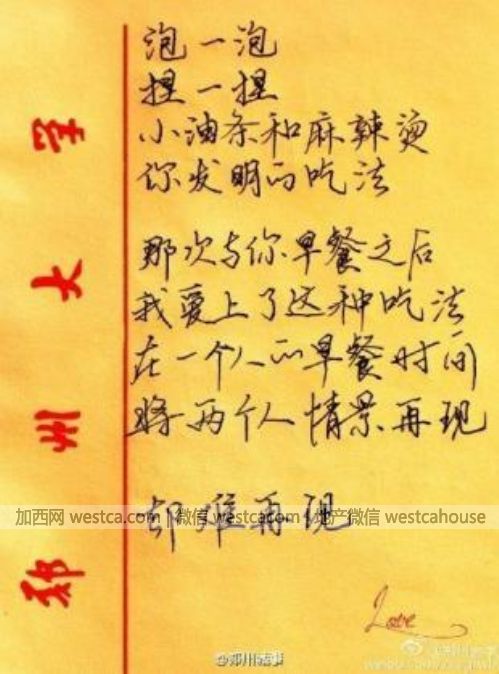 郑州大学
泡一泡
捏一捏
小油条和麻辣烫
你发明的吃法
那次与你早餐之后
我爱上了这种吃法
在一个人的早餐时间
将两个人情景再现
却难再现
加西网 westca.com 微信 地产微信 westcahouse
Love